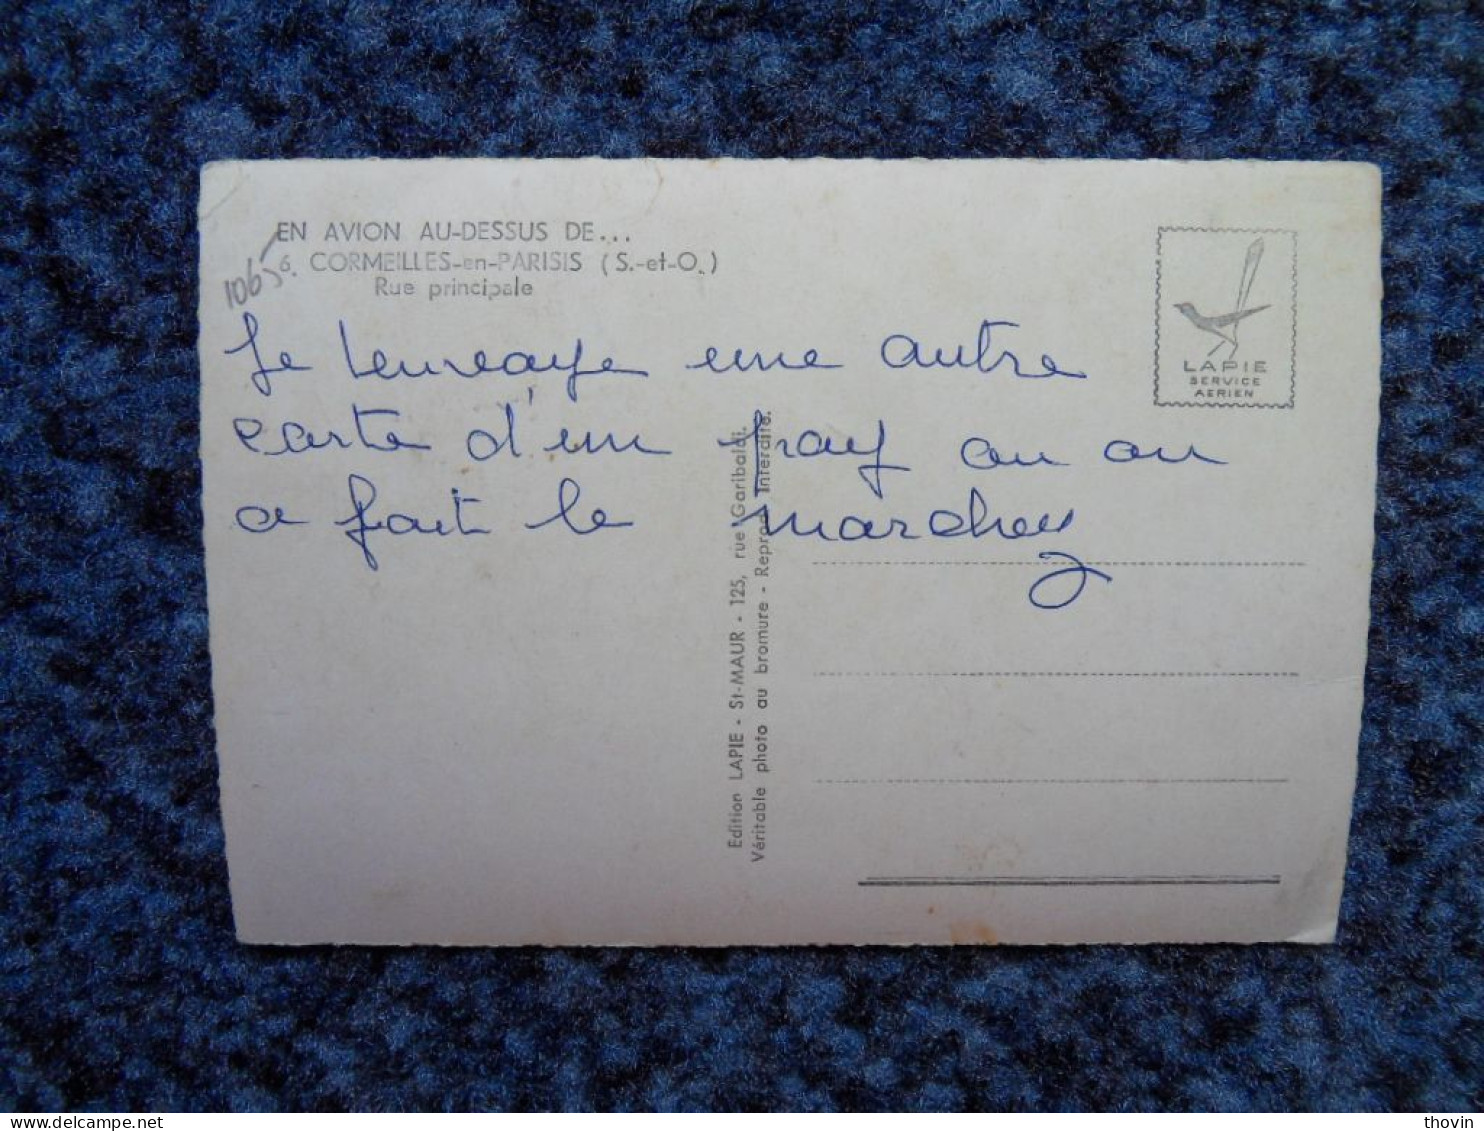 EN AVION AU-DESSUS DE...
6. CORMEILLES-en-PARISIS (S.-et-O.)
Rue principale
1065
LAPIE
SERVICE
AERIEN
Je une autre
carte d'un ou on
a fait le
Edition LAPIE - St-MAUR - 125, rue Garibaldi.
Véritable photo au bromure - Reprod. Interdite.
delcampe.net
thovin